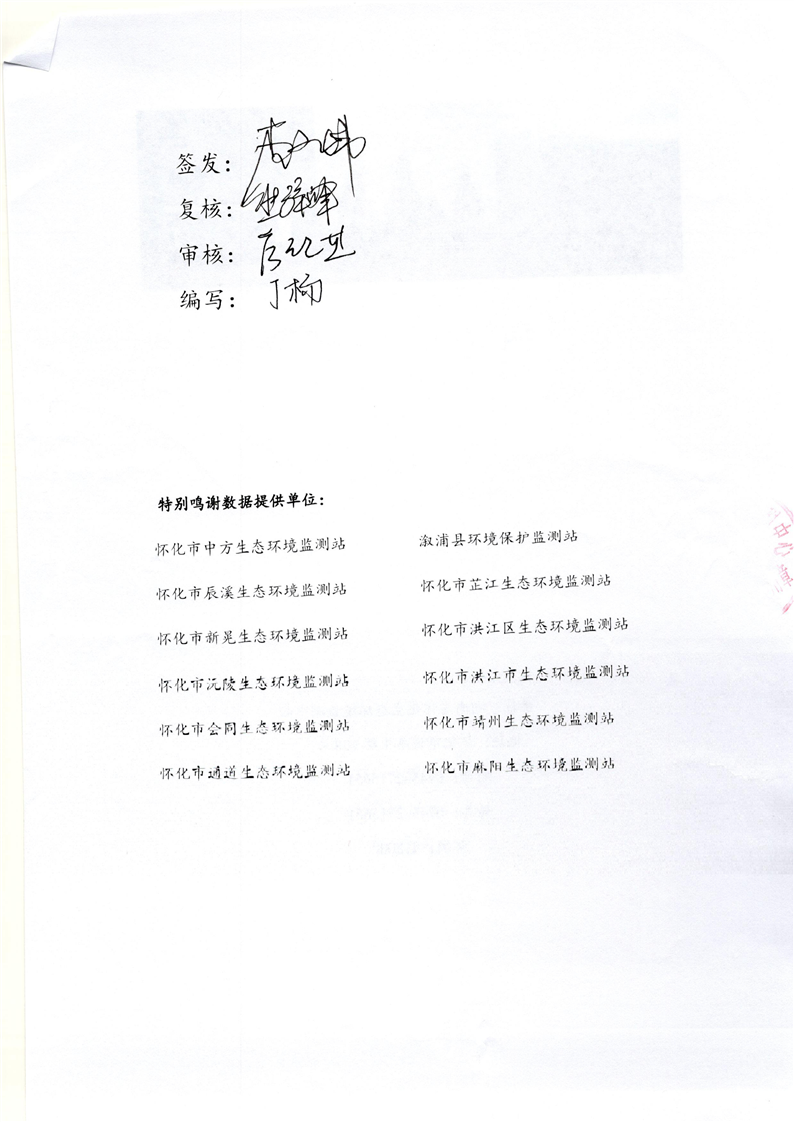 签发：
复核：
审核：
编写：丁杨
特别鸣谢数据提供单位：
怀化市中方生态环境监测站 溆浦县环境保护监测站
怀化市辰溪生态环境监测站 怀化市芷江生态环境监测站
怀化市新晃生态环境监测站 怀化市洪江区生态环境监测站
怀化市沅陵生态环境监测站 怀化市洪江市生态环境监测站
怀化市会同生态环境监测站 怀化市靖州生态环境监测站
怀化市通道生态环境监测站 怀化市麻阳生态环境监测站